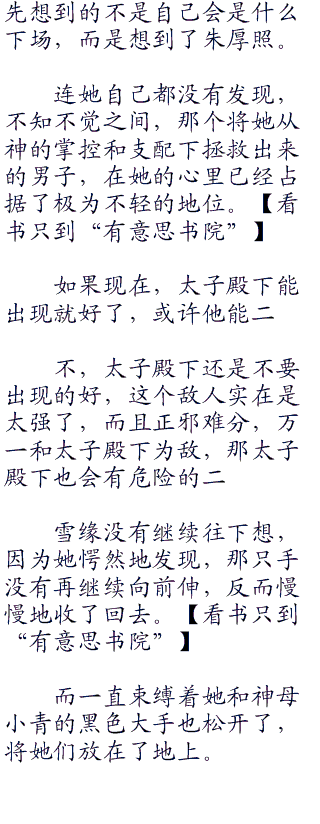 先想到的不是自己会是什么
下场，而是想到了朱厚照。
连她自己都没有发现，
不知不觉之间，那个将她从
神的掌控和支配下拯救出来
的男子，在她的心里已经占
据了极为不轻的地位。【看
书只到“有意思书院”】
如果现在，太子殿下能
出现就好了，或许他能二
不，太子殿下还是不要
出现的好，这个敌人实在是
太强了，而且正邪难分，万
一和太子殿下为敌，那太子
殿下也会有危险的二
雪缘没有继续往下想，
因为她愕然地发现，那只手
没有再继续向前伸，反而慢
慢地收了回去。【看书只到
“有意思书院”】
而一直束缚着她和神母
小青的黑色大手也松开了，
将她们放在了地上。